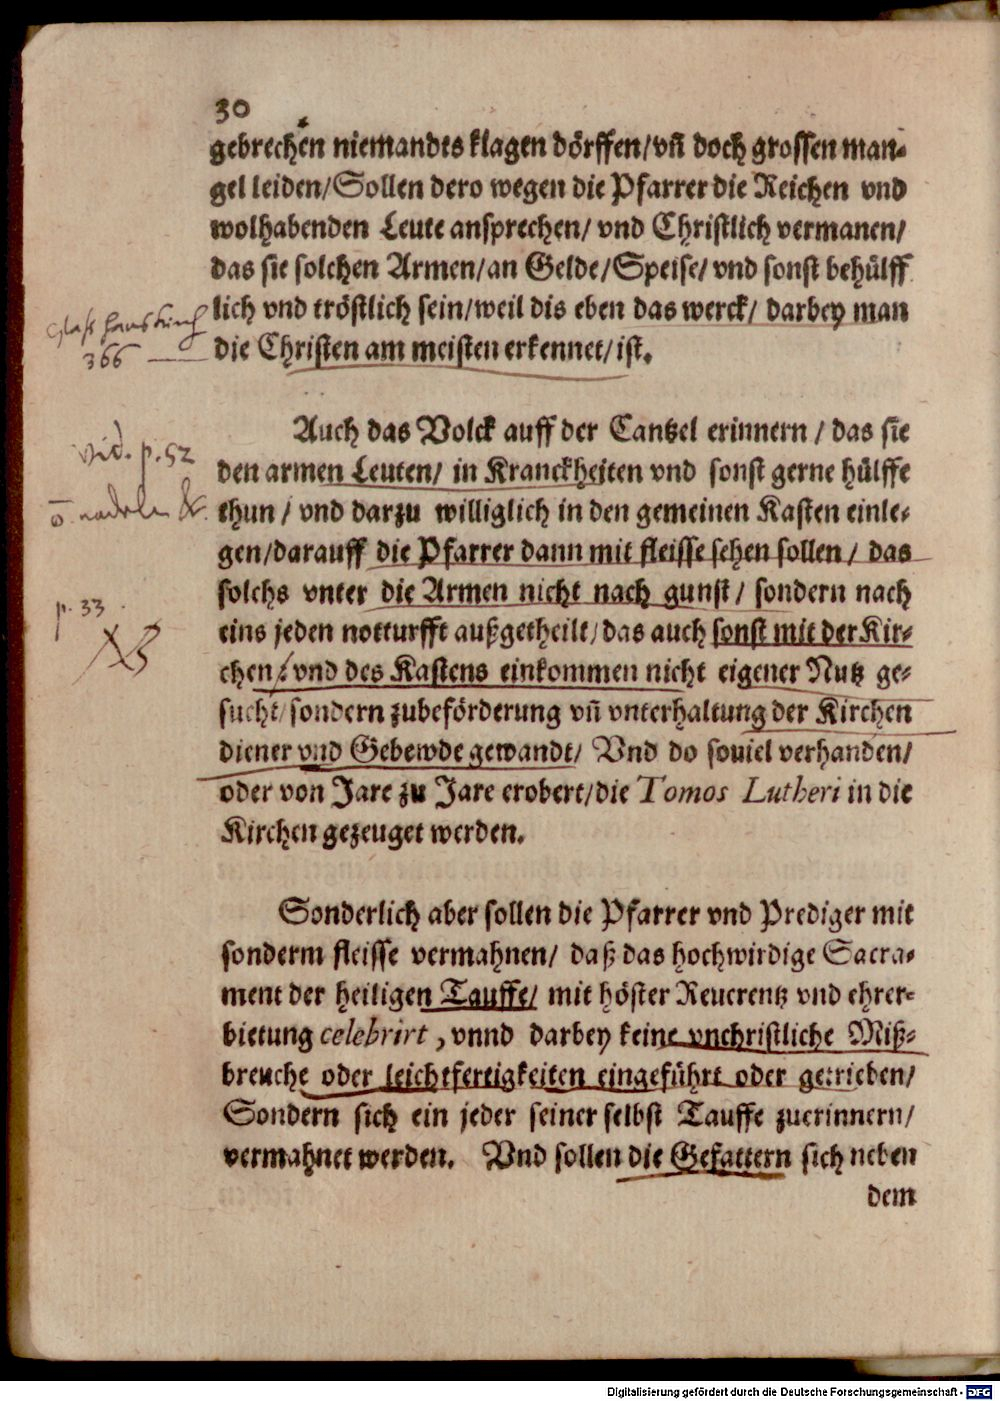 30
gebrechen niemandes klagen dörffen/vñ doch grossen man-
gel leiden/Sollen dero wegen die Pfarrer die Reichen vnd
wolhabenden Leute ansprechen/ vnd Christlich vermanen/
das sie solchen Armen/an Gelde/Speise/ vnd sonst behülff
lich vnd tröstlich sein/weil dis eben das werck/ darbey man
366
die Christen am meisten erkennet/ist.
Auch das Volck auff der Cantzel erinnern / das sie
vid. p. 52
den armen Leuten/ in Kranckheiten vnd sonst gerne hülffe
thun / vnd darzu williglich in den gemeinen Kasten einle-
gen/darauff die Pfarrer dann mit fleisse sehen sollen / das
solchs vnter die Armen nicht nach gunst/ sondern nach
p. 33
eins jeden notturfft außgetheilt/das auch sonst mit der Kir-
NB
chen/ vnd des Kastens einkommen nicht eigener Nutz ge-
sucht/sondern zubeförderung vñ vnterhaltung der Kirchen
diener vnd Gebewde gewandt/ Vnd do souiel verhanden/
oder von Jare zu Jare erobert/die Tomos Lutheri in die
Kirchen gezeuget werden.
Sonderlich aber sollen die Pfarrer vnd Prediger mit
sonderm fleisse vermahnen/ daß das hochwirdige Sacra-
ment der heiligen Tauffe/ mit höster Reuerentz vnd ehrer-
bietung celebrirt, vnnd darbey keine vnchristliche Miß-
breuche oder leichtfertigkeiten eingeführt oder getrieben/
Sondern sich ein jeder seiner selbst Tauffe zuerinnern/
vermahnet werden. Vnd sollen die Gefattern sich neben
dem
Digitalisierung gefördert durch die Deutsche Forschungsgemeinschaft - DFG